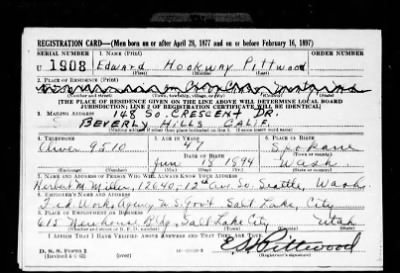 REGISTRATION CARD—(Men born on or after April 28, 1877 and on or before February 16, 1897)
SERIAL NUMBER 1. NAME (Print) ORDER NUMBER
U 1908 Edward Hookway Pittwood
(First) (Middle) (Last)
2. PLACE OF RESIDENCE (Print)
(Number and street) (Town, township, village, or city) (County) (State)
[THE PLACE OF RESIDENCE GIVEN ON THE LINE ABOVE WILL DETERMINE LOCAL BOARD
JURISDICTION; LINE 2 OF REGISTRATION CERTIFICATE WILL BE IDENTICAL]
3. MAILING ADDRESS 148 So. CRESCENT DR.
BEVERLY HILLS CALIF.
[Mailing address if other than place indicated on line 2. If same insert word same]
4. TELEPHONE 5. AGE IN YEARS 6. PLACE OF BIRTH
47 Spokane
9510 DATE OF BIRTH (Town or county)
Jun 13 1894 Wash.
(Exchange) (Number) (Mo.) (Day) (Yr.) (State or country)
7. NAME AND ADDRESS OF PERSON WHO WILL ALWAYS KNOW YOUR ADDRESS
Herbert M. Miller, 12640-12th Av. So. Seattle, Wash
8. EMPLOYER'S NAME AND ADDRESS
Fed. Works Agency U S Govt Salt Lake City
9. PLACE OF EMPLOYMENT OR BUSINESS
615 Bldg. Salt Lake City Utah
(Number and street or R. F. D. number) (Town) (County) (State)
I AFFIRM THAT I HAVE VERIFIED ABOVE ANSWERS AND THAT THEY ARE TRUE.
D. S. S. Form 1
E. H. Pittwood